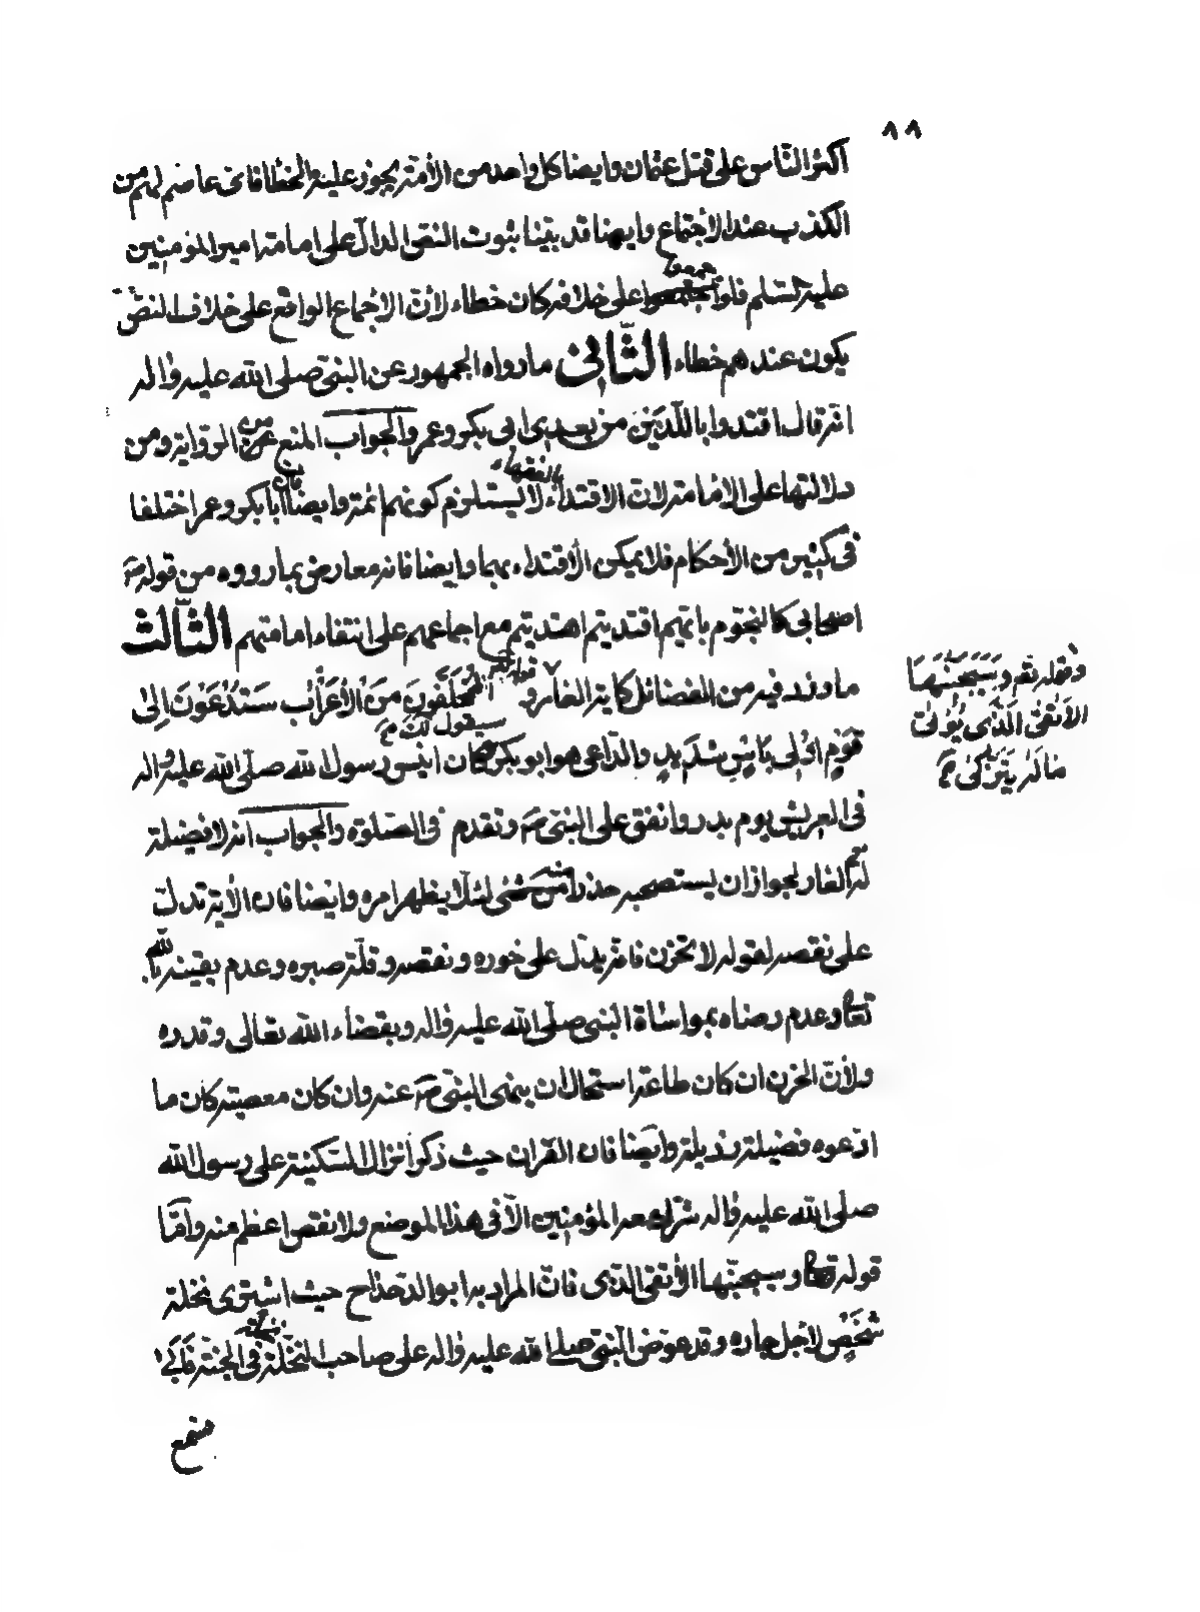 ٨٨
اكثر الناس على قتل عثمان وايضا كل واحد من الأمة يجوز عليه الخطا فاى عاصم لهم من
الكذب عند الاجتماع وايضا قد بينا ثبوت النص الدال على امامة امير المؤمنين
عليه السلم فلو اجمعوا على خلافه كان خطاء لأن الاجماع الواقع على خلاف النص
يكون عندهم خطاء الثانى ما رواه الجمهور عن النبى صلى الله عليه واله
انه قال اقتدوا باللذين من بعدى ابى بكر وعمر والجواب المنع من الرواية ومن
دلالتها على الامامة لان الاقتداء بالفقهاء لا يستلزم كونهم ائمة وايضا فان ابا بكر وعمر اختلفا
فى كثير من الأحكام فلا يمكن الأقتداء بهما وايضا فانه معارض بما رووه من قوله ص
اصحابى كالنجوم بايهم اقتديتم اهتديتم مع اجماعهم على انتفاء امامتهم الثالث
ما ورد فيه من الفضائل كاية الغار و قوله تعالى قل للمخلفون من الأعراب ستدعون إلى
سيقول لك
قوم اولى باس شديد والداعى هو ابو بكر وكان انيس رسول الله صلى الله عليه واله
فى العريش يوم بدر وانفق على النبى ص وتقدم فى الصلوة والجواب انه لا فضيلة
له فى الغار لجواز ان يستصحبه حذرا منه لئلا يظهر امره وايضا فان الأية تدل
على نقصه لقوله لا تحزن فانه يدل على خوره ونقصه وقلة صبره وعدم يقينه بالله
تعالى وعدم رضاه بمواساة النبى صلى الله عليه واله وبقضاء الله تعالى وقدره
ولأن الحزن ان كان طاعة استحال ان ينهى النبى ص عنه وان كان معصية كان ما
ادعوه فضيلة رذيلة وايضا فان القران حيث ذكر انزال السكينة على رسول الله
صلى الله عليه واله شرك معه المؤمنين الا فى هذا الموضع ولا نقص اعظم منه واما
قوله تعالى وسيجنبها الأتقى الذى فان المراد به ابو الدحداح حيث اشترى نخلة
شخص لأجل جاره وقد عرض النبى صلى الله عليه واله على صاحب النخلة نخلة فى الجنة فابى
فسمع
وقوله تعالى وسيجنبها
الأتقى الذى يؤتى
ماله يتزكى